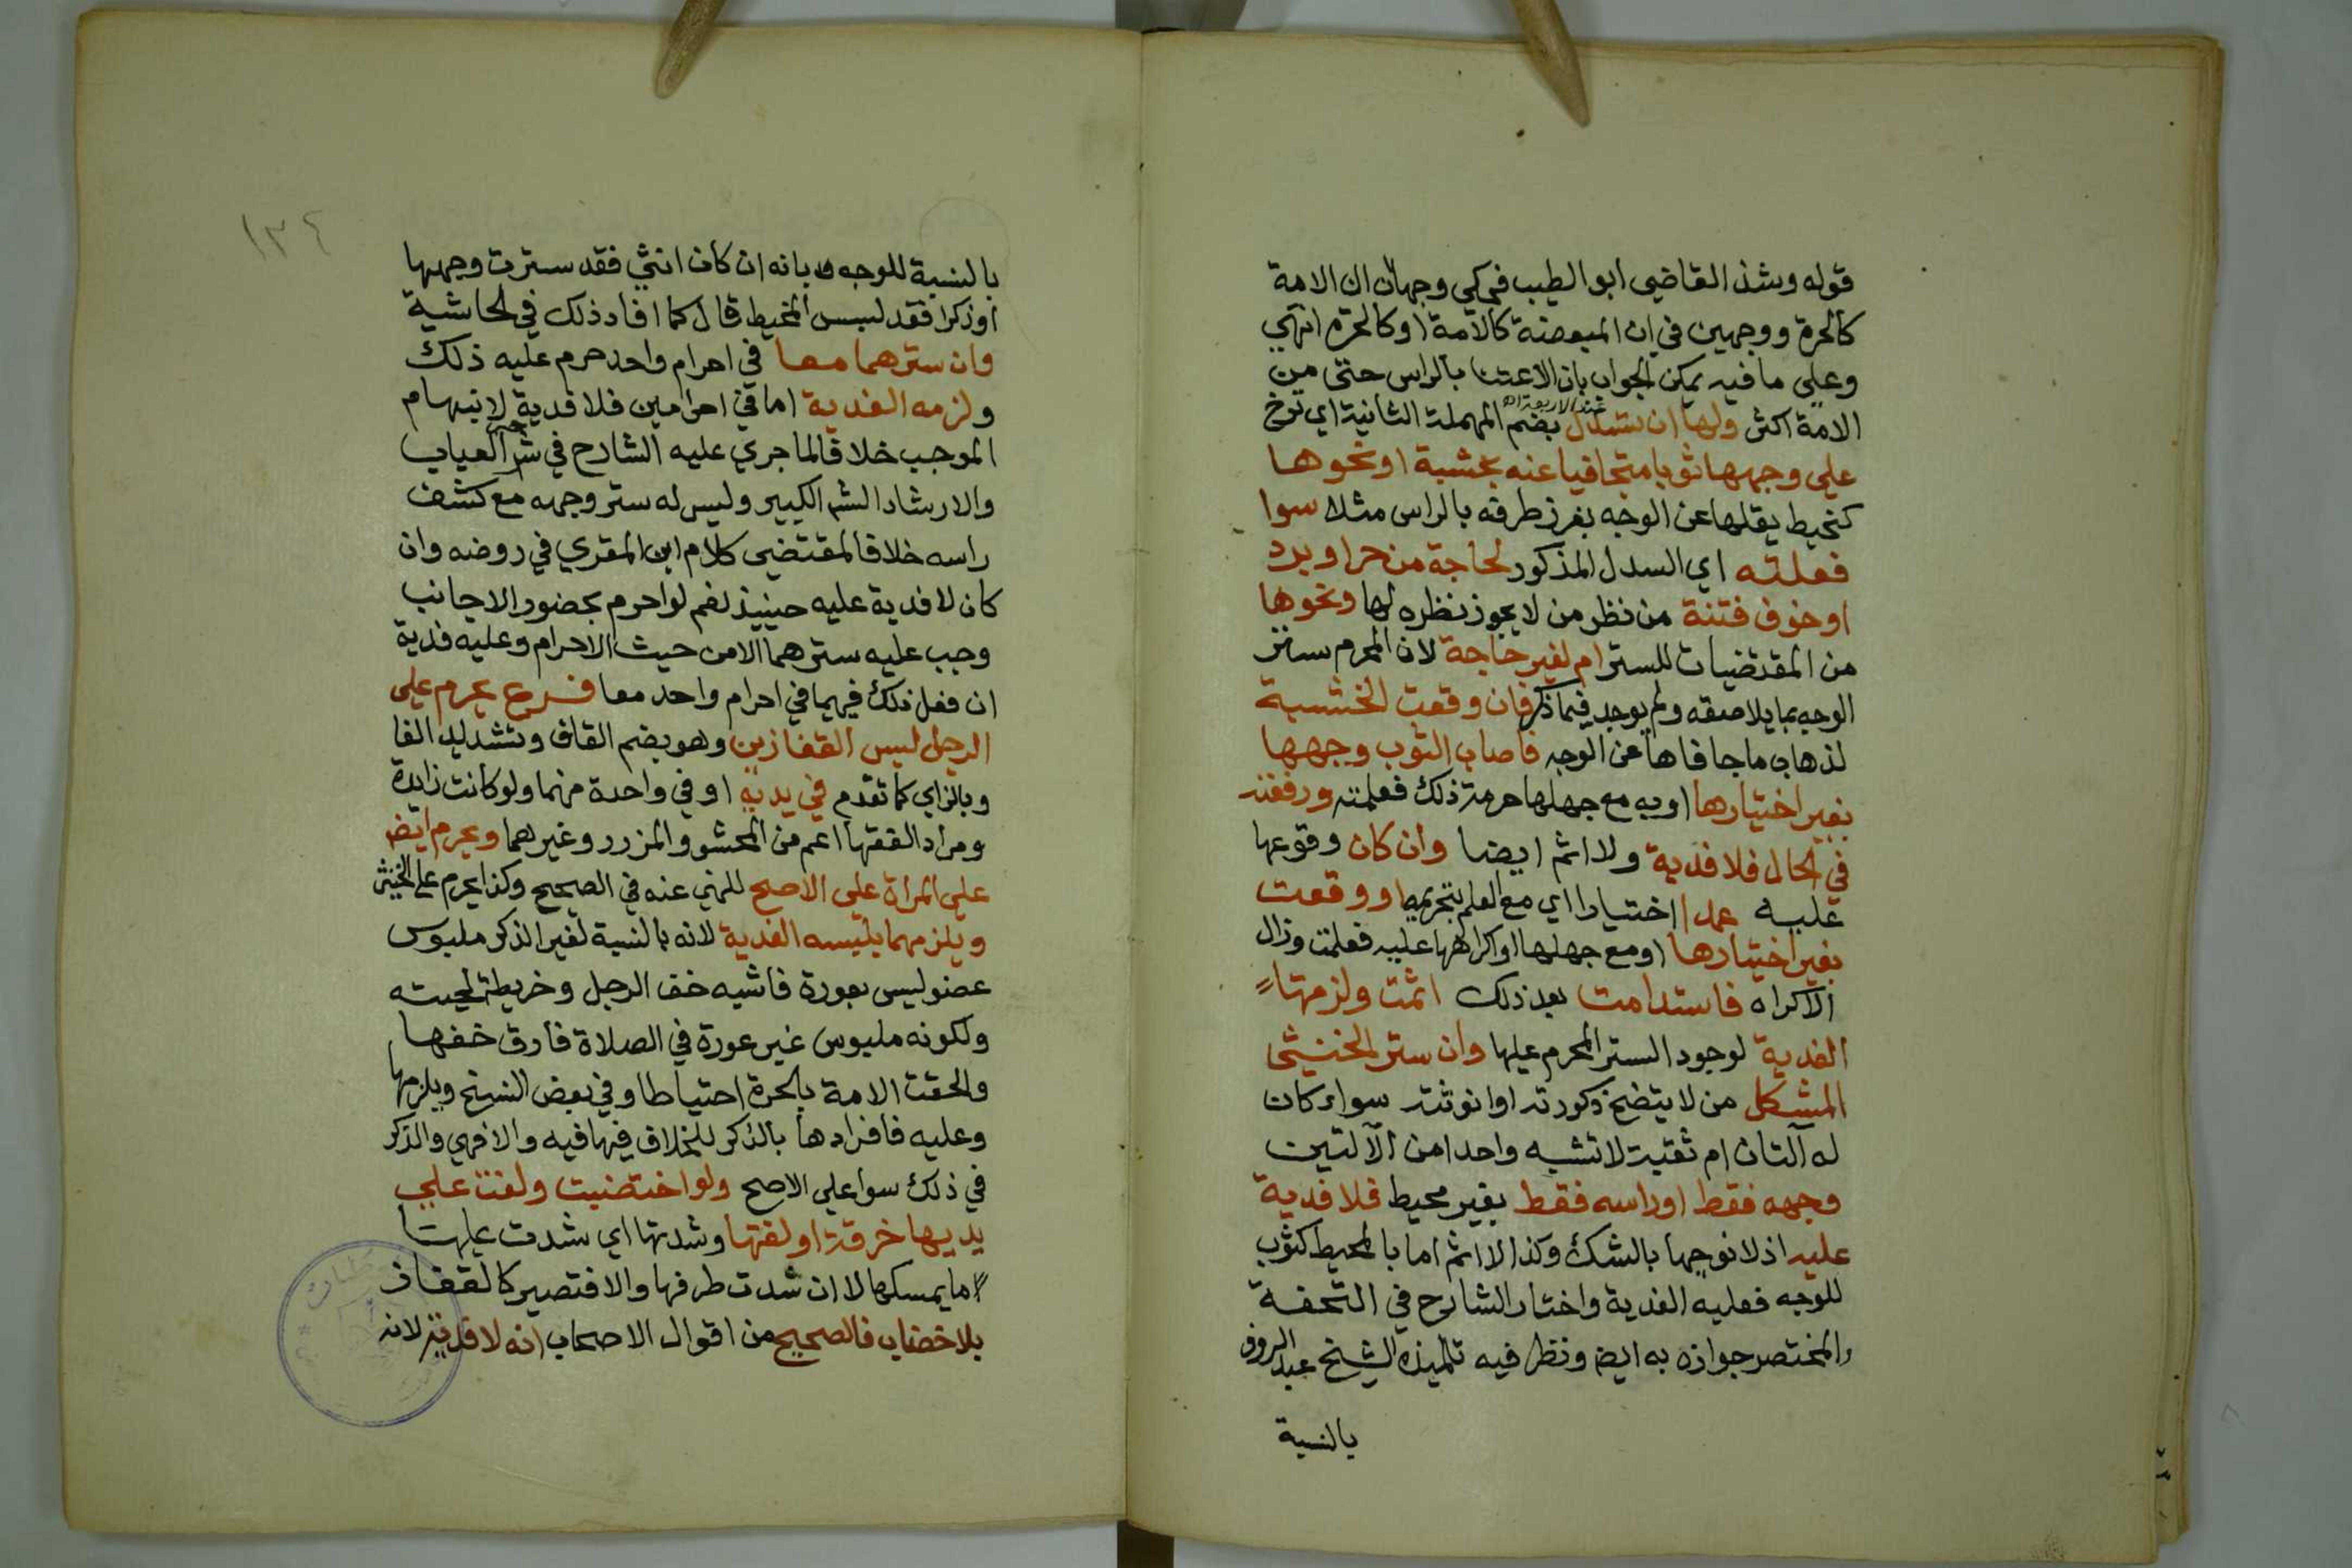 قوله وشذ القاضي ابو الطيب فحكي وجهان ان الامة
كالحرة ووجهين في ان المبعضة كالامة اوكالحرة انتهي
وعلي ما فيه يمكن الجواب بان الاعتنا بالراس حتي من
الامة اكثر ولها ان تسدل بضم المهملة الثانية اي ترخ
عند الاربعة اه
علي وجهها ثوبا متجافيا عنه بخشبة او نحوها
كخيط يقلها عن الوجه بغرز طرفه بالراس مثلا سوا
فعلته اي السدل المذكور لحاجة من حر او برد
او خوف فتنة من نظر من لا يجوز نظره لها ونحوها
من المقتضيات للستر ام لغير حاجة لان المحرم ستر
الوجه بما يلاصقه ولم يوجد فيما ذكر فان وقعت الخشبة
لذهاب ما جافاها عن الوجه فاصاب الثوب وجهها
بغير اختيارها او به مع جهلها حرمة ذلك فعلمته ورفعته
في الحال فلا فدية ولا اثم ايضا وان كان وقوعها
عليه عمدا اختيارا اي مع العلم بتحريمه او وقعت
بغير اختيارها او مع جهلها او اكراهها عليه فعلمت وزال
الاكراه فاستدامت بعد ذلك اثمت ولزمتها
الفدية لوجود الستر المحرم عليها وان ستر الخنثي
المشكل من لا يتضح ذكورته او انوثته سواء كان
له آلتان ام ثقبة لا تشبه واحدا من الآلتين
وجهه فقط او راسه فقط بغير محيط فلا فدية
عليه اذ لا نوجبها بالشك وكذا لا اثم اما بالمحيط كثوب
للوجه فعليه الفدية واختار الشارح في التحفة
والمختصر جوازه به ايض ونظر فيه تلميذه الشيخ عبد الروف
بالنسبة
١٣٤
بالنسبة للوجه بانه ان كان انثي فقد سترت وجهها
او ذكرا فقد لبس المخيط قال كما افاد ذلك في الحاشية
وان سترهما معا في احرام واحد حرم عليه ذلك
ولزمه الفدية اما في احرامين فلا فدية لانبهام
الموجب خلافا لما جري عليه الشارح في شرحي العباب
والارشاد الشم الكبير وليس له ستر وجهه مع كشف
راسه خلافا لمقتضي كلام ابن المقري في روضه وان
كان لا فدية عليه حينيذ نعم لو احرم بحضور الاجانب
وجب عليه سترهما لا من حيث الاحرام وعليه فدية
ان فعل ذلك فيهما في احرام واحد معا فرع يحرم علي
الرجل لبس القفازين وهو بضم القاف وتشديد الفا
وبالزاي كما تقدم في يديه او في واحدة منهما ولو كانت زايدة
ومراد الفقها اعم من المحشو والمزرر وغيرهما ويحرم ايض
علي المراة علي الاصح للنهي عنه في الصحيح وكذا يحرم علي الخنثي
ويلزمهما بلبسه الفدية لانه بالنسبة لغير الذكر ملبوس
عضو ليس بعورة فاشبه خف الرجل وخريطة لحيته
ولكونه ملبوس غير عورة في الصلاة فارق خفها
والحقت الامة بالحرة احتياطا وفي بعض النسخ ويلزمها
وعليه فافرادها بالذكر للخلاف فيها فيه والا فهي والذكر
في ذلك سوا علي الاصح ولو اختضبت ولفت علي
يديها خرقة او لفتها وشدتها اي شدت عليها
ما يمسكها لا ان شدت طرفها والا فتصير كالقفاز
بلا خضاب فالصحيح من اقوال الاصحاب انه لا فدية لانه